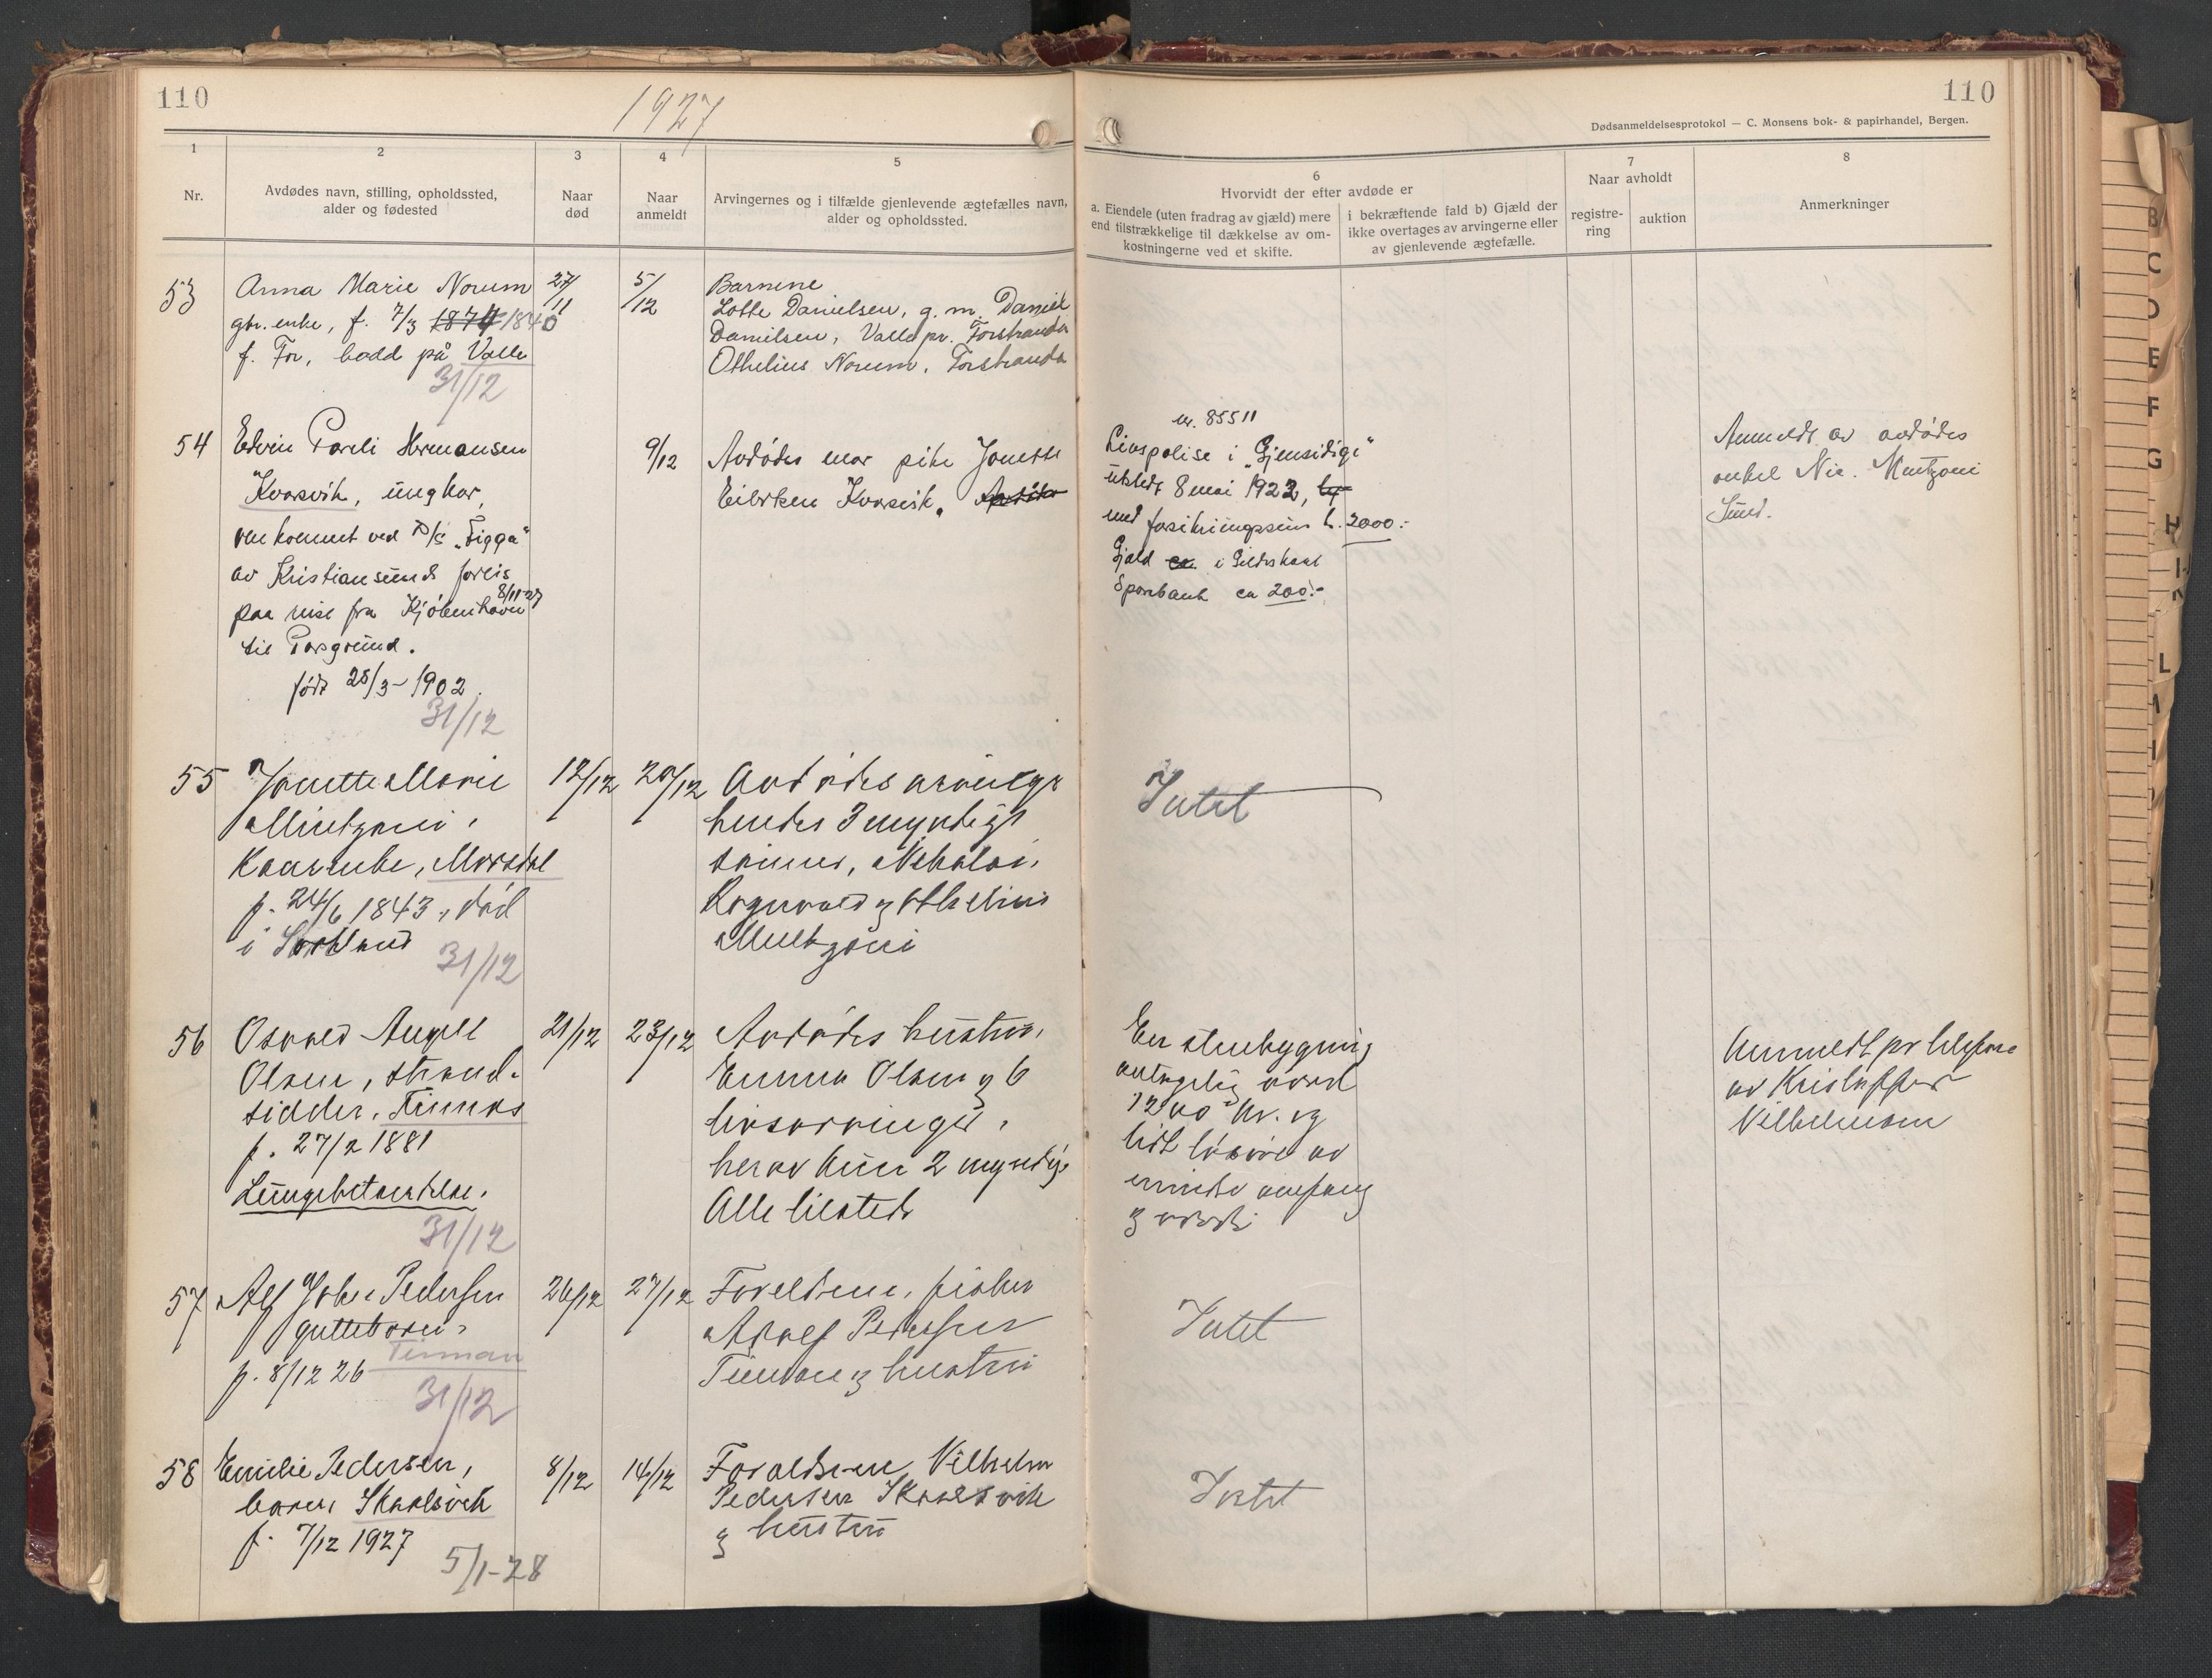 110
1927
110
Dødsanmeldelsesprotokol — C. Monsens bok- & papirhandel, Bergen.
1
Nr.
2
Avdødes navn, stilling, opholdssted,
alder og fødested
3
Naar
død
4
Naar
anmeldt
5
Arvingernes og i tilfælde gjenlevende ægtefælles navn,
alder og opholdssted.
6
Hvorvidt der efter avdøde er
a. Eiendele (uten fradrag av gjæld) mere
end tilstrækkelige til dækkelse av om-
kostningerne ved et skifte.
i bekræftende fald b) Gjæld der
ikke overtages av arvingerne eller
av gjenlevende ægtefælle.
7
Naar avholdt
registre-
ring
auktion
8
Anmerkninger
53
Anna Marie Norum
gbr. enke, f. 7/3 1874 1840
f. For, bodd på Valle
31/12
27/11
5/12
Barnene
Lotte Danielsen, g. m. Daniel
Danielsen, Valle pr. Forstranda
Othelius Norum, Forstranda
54
Edvin Pareli Hermansen
Kvarsvik, ungkar,
omkommet ved D/S "Sigga"
av Kristiansund forlis
8/11-27
paa reise fra Kjöbenhavn
til Porsgrund.
född 25/3-1902.
31/12
9/12
Avdödes mor pike Jonette
Eilertsen Kvarsvik. Avdöde
nr. 85511
Livspolise i "Gjensidige"
utstedt 8 mai 1922,
med forsikringssum kr. 2000.-
Gjæld ca. i Gildeskaal
Sparebank ca 200.-
Anmeldt av avdödes
onkel Nic. Mentzoni
Sund.
55
Jonette Marie
Mentzoni,
Kaarenke, Morsdal
f. 24/6 1843, död
i Sörland
31/12
12/12
20/12
Avdödes arvinger
hendes 3 myndige
sönner, Nikolai,
Ragnvald og Othelius
Mentzoni
Intet
56
Osvald Angell
Olsen, strand-
sidder, Finnes
f. 27/2 1881
Lungebetændelse.
31/12
21/12
23/12
Avdödes hustru,
Emma Olsen og 6
livsarvinger,
herav kun 2 myndige
Alle tilstede
En stuebygning
antagelig værd
1200 kr. og
lidt lösöre av
mindre omfang
og værdi
Anmeldt pr telefon
av Kristoffer
Vilhelmsen
57
Alf Johan Pedersen
guttebarn,
f. 8/12 26 Finnan
31/12
26/12
27/12
Foreldrene, fisker
Adolf Pedersen
Finnan og hustru
Intet
58
Emilie Pedersen,
barn, Skaalsvik
f. 7/12 1927
5/1-28
8/12
14/12
Foreldrene Vilhelm
Pedersen Skaalsvik
og hustru
Intet